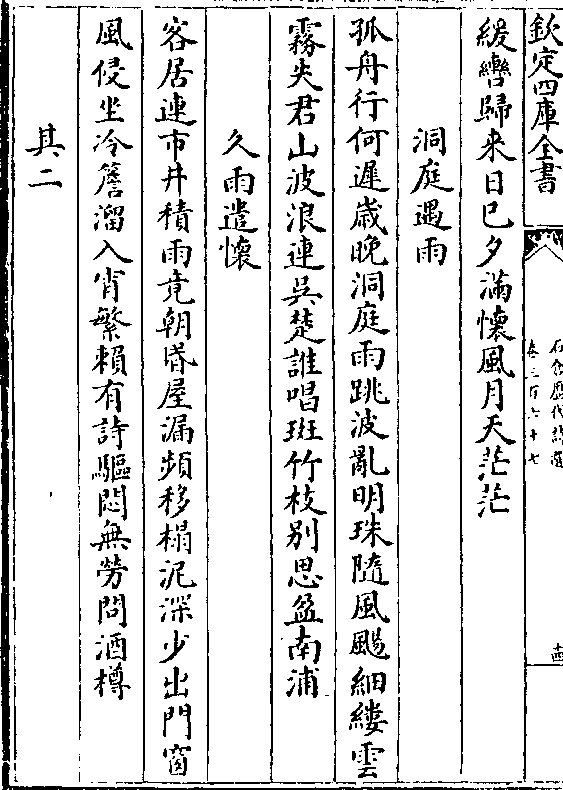 欽定四庫全書
石倉歷代詩選
卷三百六十七
十四
緩轡歸来日已夕滿懷風月天茫茫
洞庭遇雨
孤舟行何遲歲晚洞庭雨跳波亂明珠隨風颺細縷雲
霧失君山波浪連吳楚誰唱斑竹枝别思盈南浦
久雨遣懷
客居連市井積雨竟朝昏屋漏頻移榻泥深少出門窗
風侵坐冷簷溜入宵繁賴有詩驅悶無勞問酒樽
其二